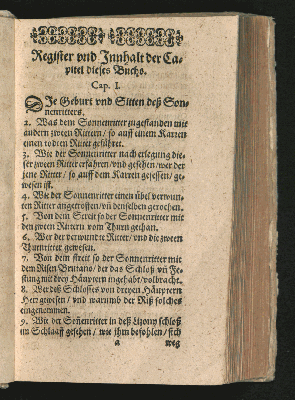 Register vnd Innhalt der Ca-
pitel dieses Buchs.
Cap. I.
DIe Geburt vnd Sitten deß Son-
nenritters.
2. Was dem Sonnenritter zugestanden mit
andern zweyen Rittern / so auff einem Karren
einen todten Ritter geführet.
3. Wie der Sonnenritter nach erlegung die-
ser zweyen Ritter erfahren / vnd gesehen / wer der
jene Ritter / so auff dem Karren gesessen / ge-
wesen ist.
4. Wie der Sonnenritter einen übel verwun-
ten Ritter angetroffen / vñ denselben gerochen.
5. Von dem Streit so der Sonnenritter mit
den zweyen Rittern vom Thurn gethan.
6. Wer der verwundte Ritter / vnd die zween
Thurnritter gewesen.
7. Von dem streit so der Sonnenritter mit
dem Risen Brutano / der das Schloß vñ Fe-
stung mit drey Häuptern inngehabt / volbracht.
8. Wer deß Schlosses von dreyen Häuptern
Herr gewesen / vnd warumb der Riß solches
eingenommen.
9. Wie der Soñenritter in deß Lizony schloß
im Schlaaff gesehen / wie ihm befohlen / sich
a weg